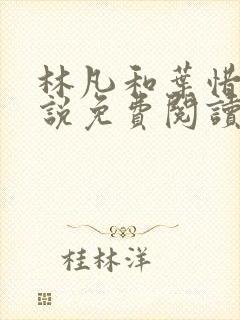 林凡和葉惜
說免費閱讀
桂林洋